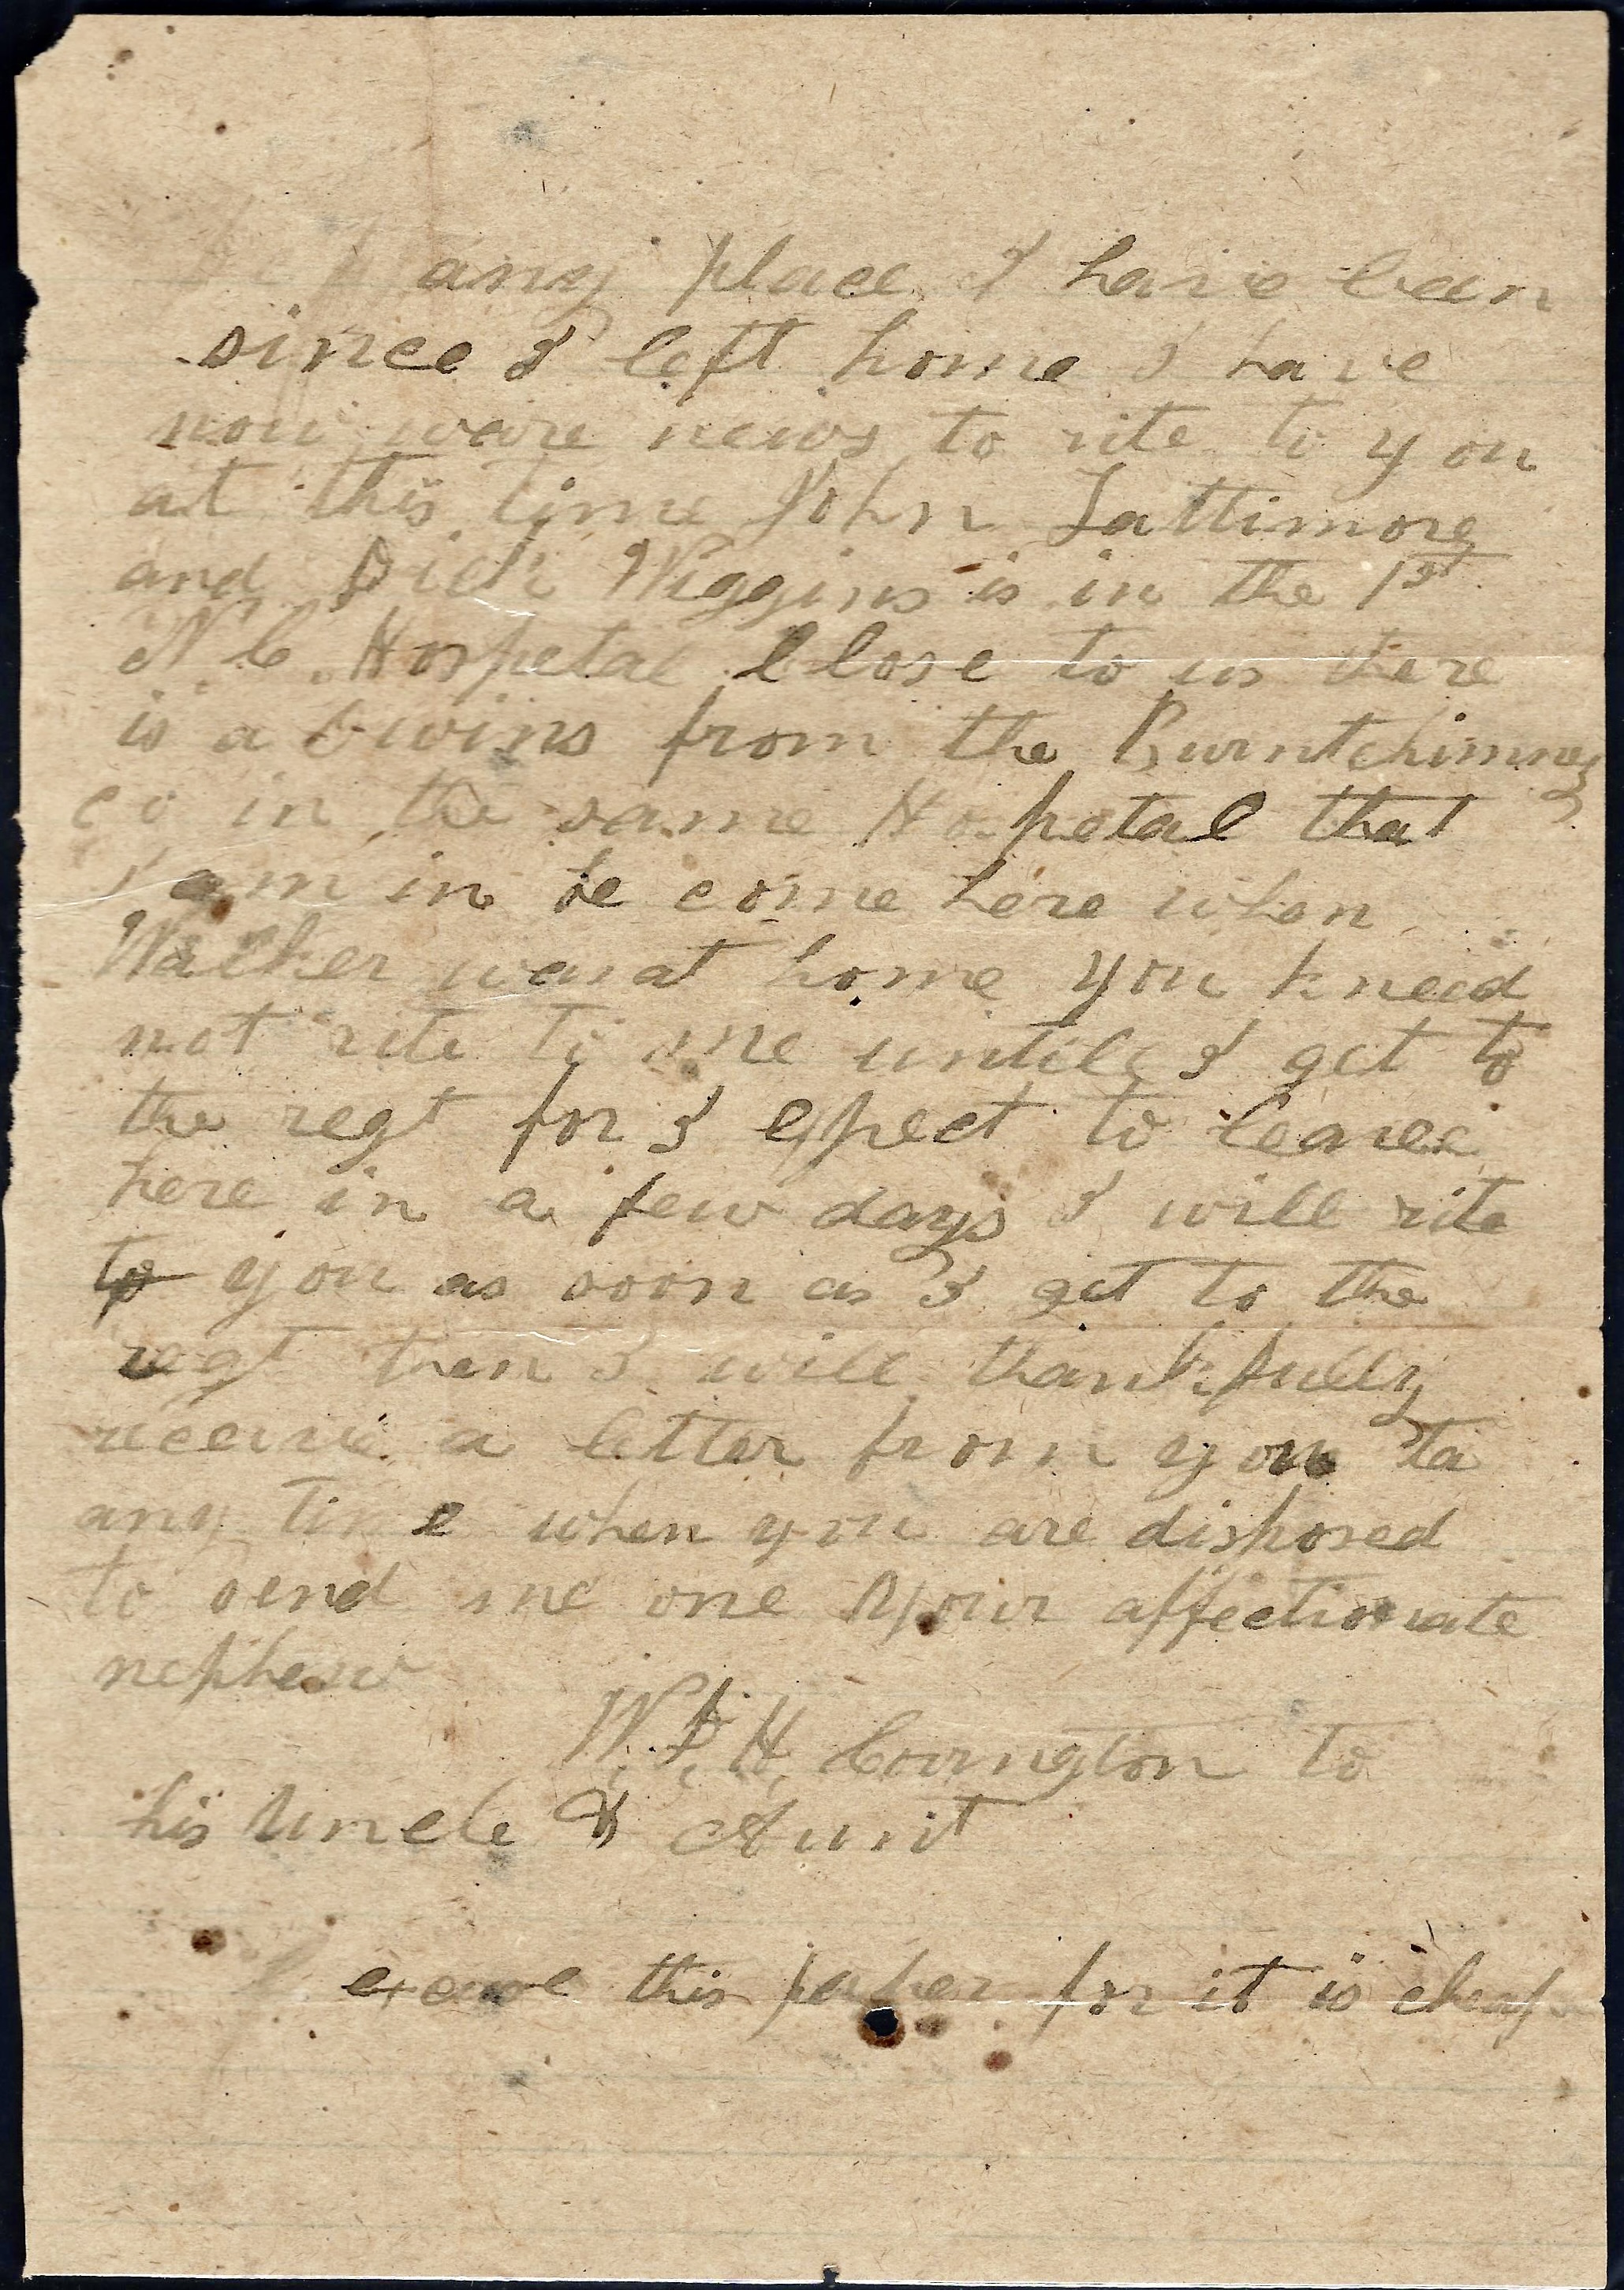 any place I have been
since I left home I have
now ware news to rite to you
at this time John Lattimore
and Dick Wiggins is in the 1st
N. C. Hospetal Close to us there
is a Owins from the Burntchimney
co in the same Hospetal that
I am in he come here when
Walker was at home you kneed
not rite to me untile I get to
the regt for I expect to leave
here in a few days I will rite
to you as soon as I get to the
regt then I will thankfully
receive a letter from you ta
any time when you are disposed
to send me one Your affectionate
nephew
W. H. Covington to
his Uncle & Aunt
excuse this paper for it is cheap